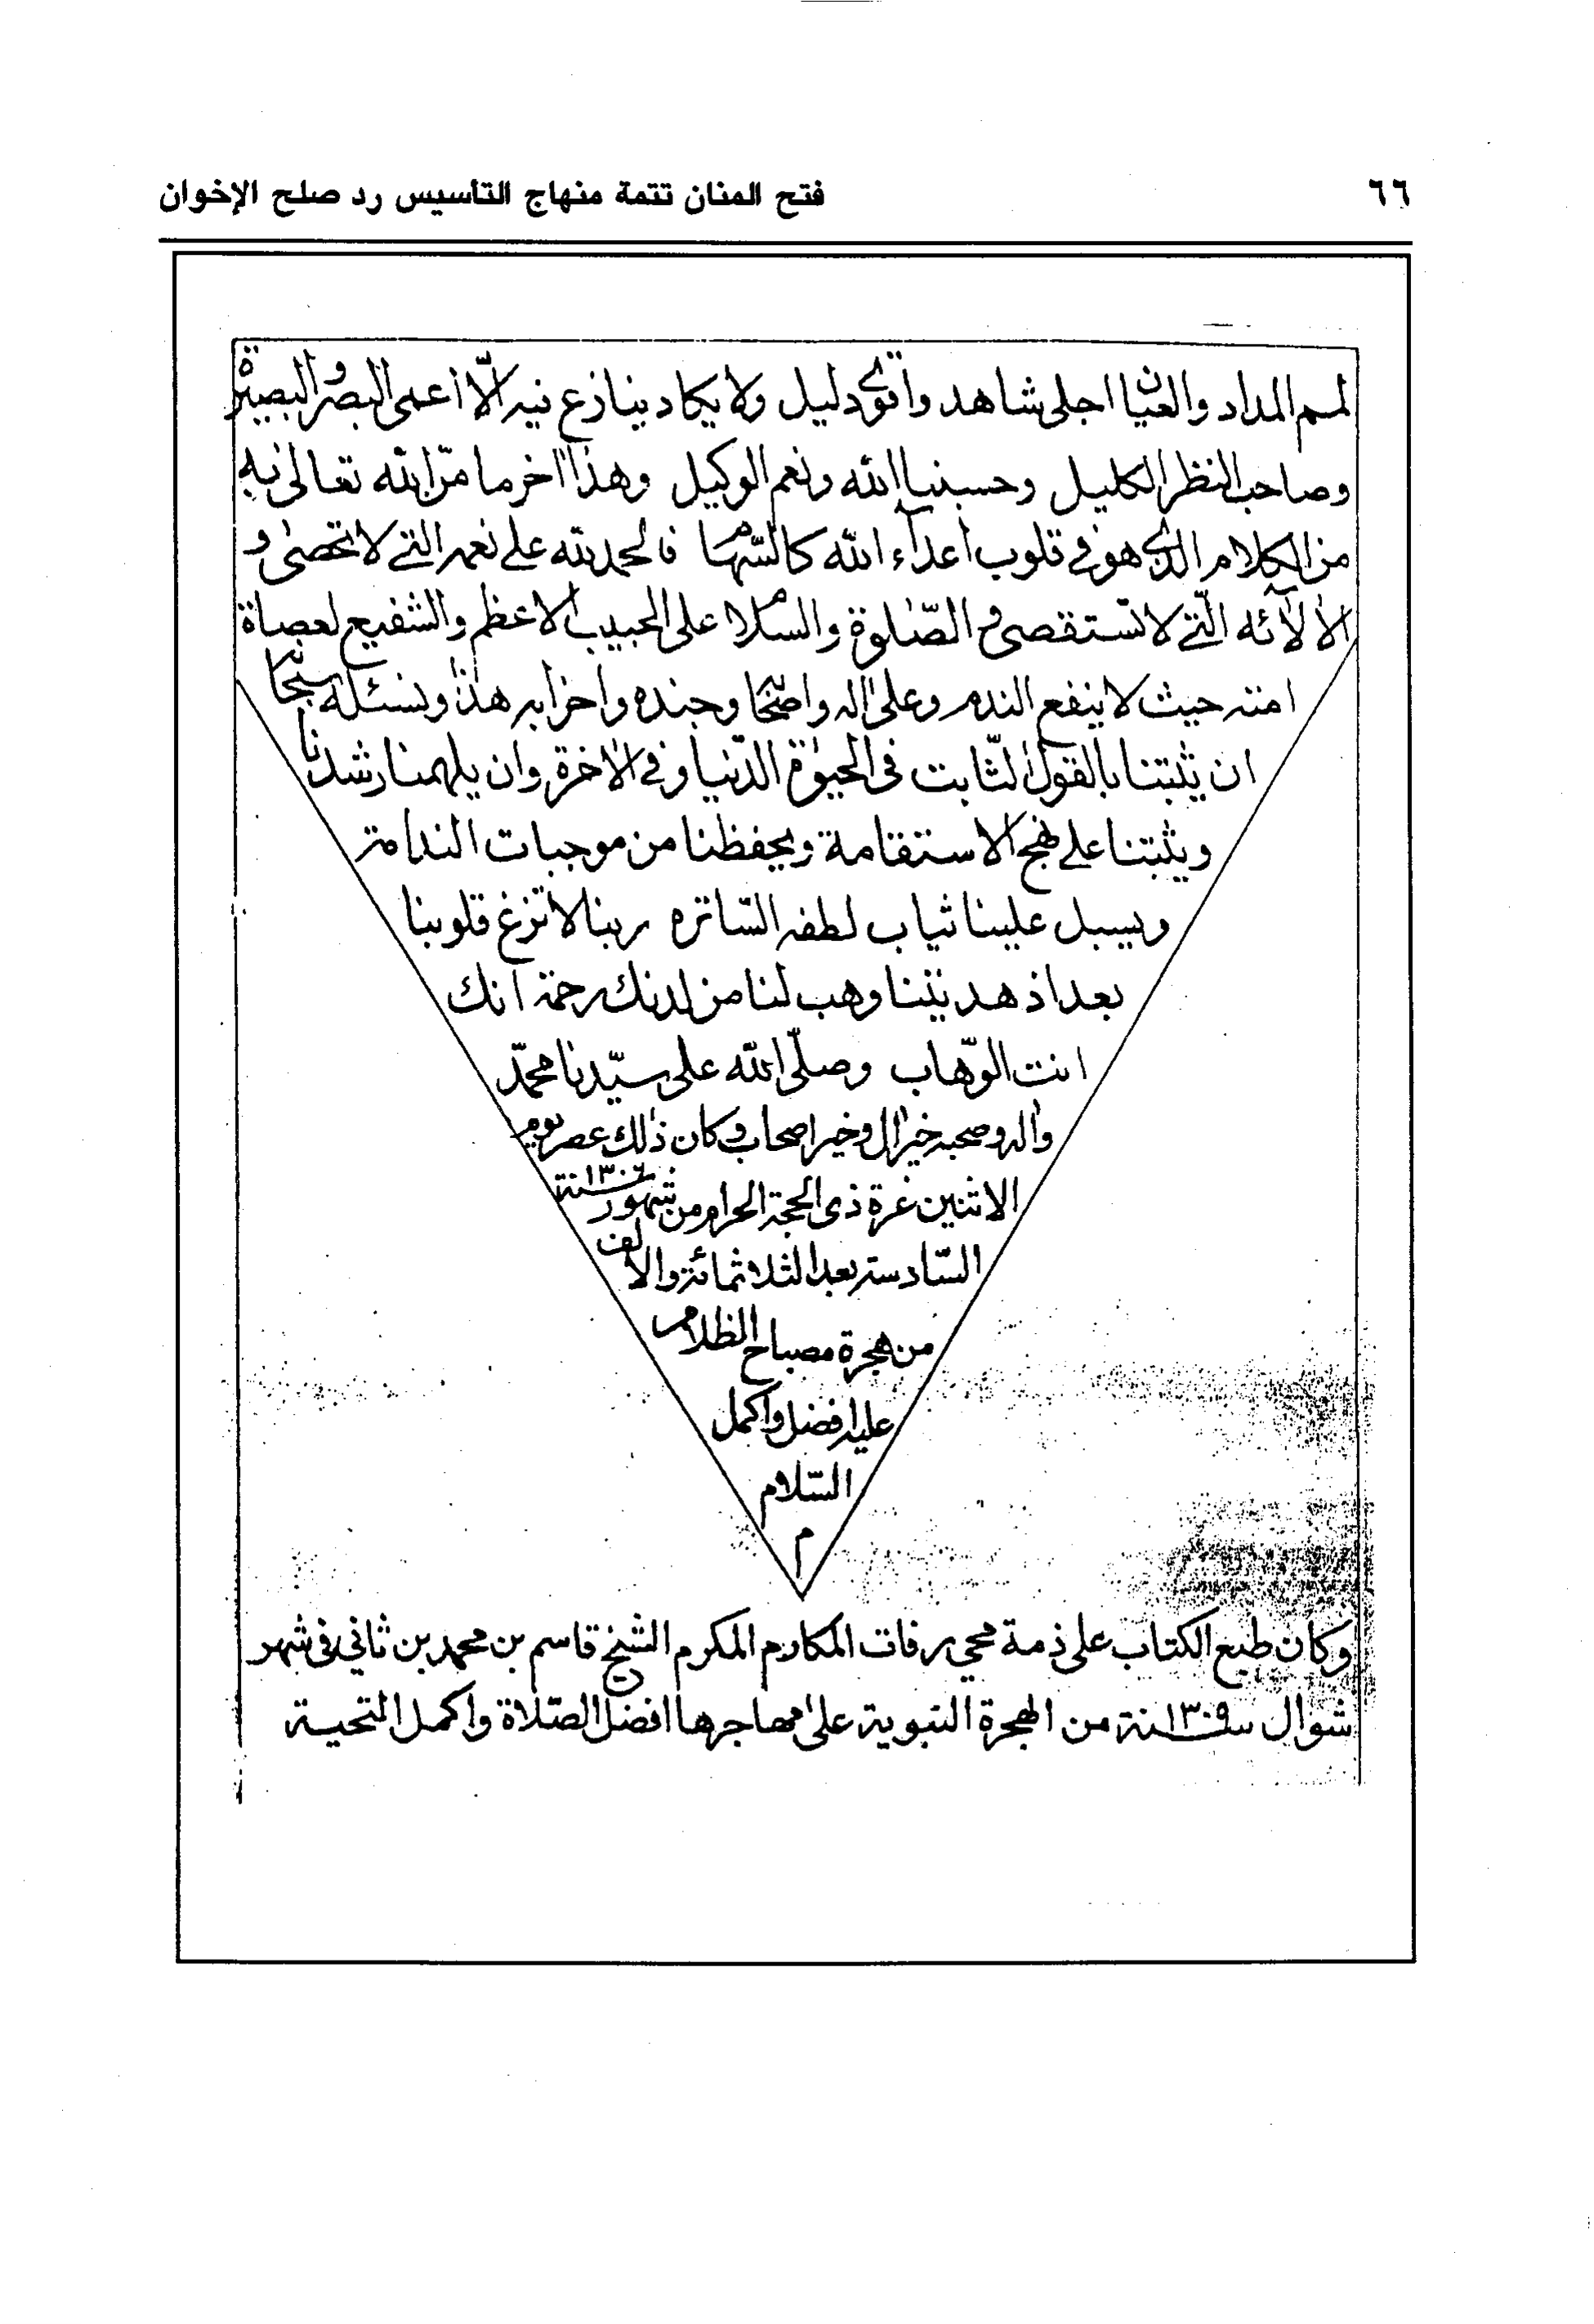 ٦٦
فتح المنان تتمة منهاج التأسيس رد صلح الإخوان
لهم المداد والعيان اجلى شاهد وأقوى دليل ولا يكاد ينازع فيه الّا أعمى البصر والبصيرة
وصاحب النظر الكليل وحسبنا الله ونعم الوكيل وهذا اخر ما منّ الله تعالى به
من الكلام الذي هو في قلوب اعدآء الله كالسّهام فالحمد لله على نعمه التي لا تحصىٰ و
الآلائه الّتي لا تستقصى والصّلوة والسّلام على الحبيب الاعظم والشفيع لعصاة
امته حيث لا ينفع الندم وعلىٰ اله واصحابه وجنده واحزابه هذا ونسئله سبحانه
ان يثبتنا بالقول الثّابت فى الحيوٰة الدّنيا وفي الاٰخرة وان يلهمنا رشدنا
ويثبتنا على نهج الاستقامة ويحفظنا من موجبات الندامة
ويسبل علينا ثياب لطفه السّاتره ربنا لا تزغ قلوبنا
بعد اذ هديتنا وهب لنا من لدنك رحمة انك
انت الوّهاب وصلّى الله على سيّدنا محمّد
واله وصحبه خير ال وخير اصحاب وكان ذٰلك عصر يوم
الاثنين غرة ذى الحجة الحرام من شهور سنة ١٣٠٦
السّادسة بعد الثلاثمائة والالف
من هجرة مصباح الظلام
عليه افضل واكمل
السّلام
م
وكان طبع الكتاب على ذمة محي رفات المكارم المكرم الشيخ قاسم بن محمد بن ثاني فى شهر
شوال سنة ١٣٠٩ من الهجرة النبوية علىٰ مهاجرها افضل الصّلاة واكمل التحية